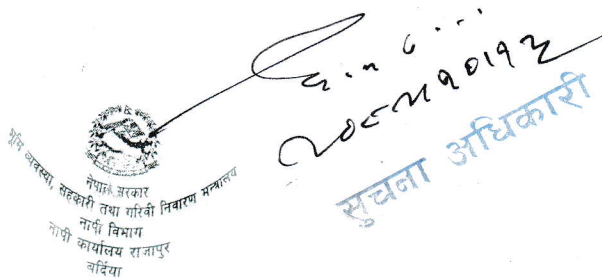 सुचना अधिकारी
नेपाल सरकार
भूमि व्यवस्था, सहकारी तथा गरिवी निवारण मन्त्रालय
नापी विभाग
नापी कार्यालय राजापुर
बर्दिया